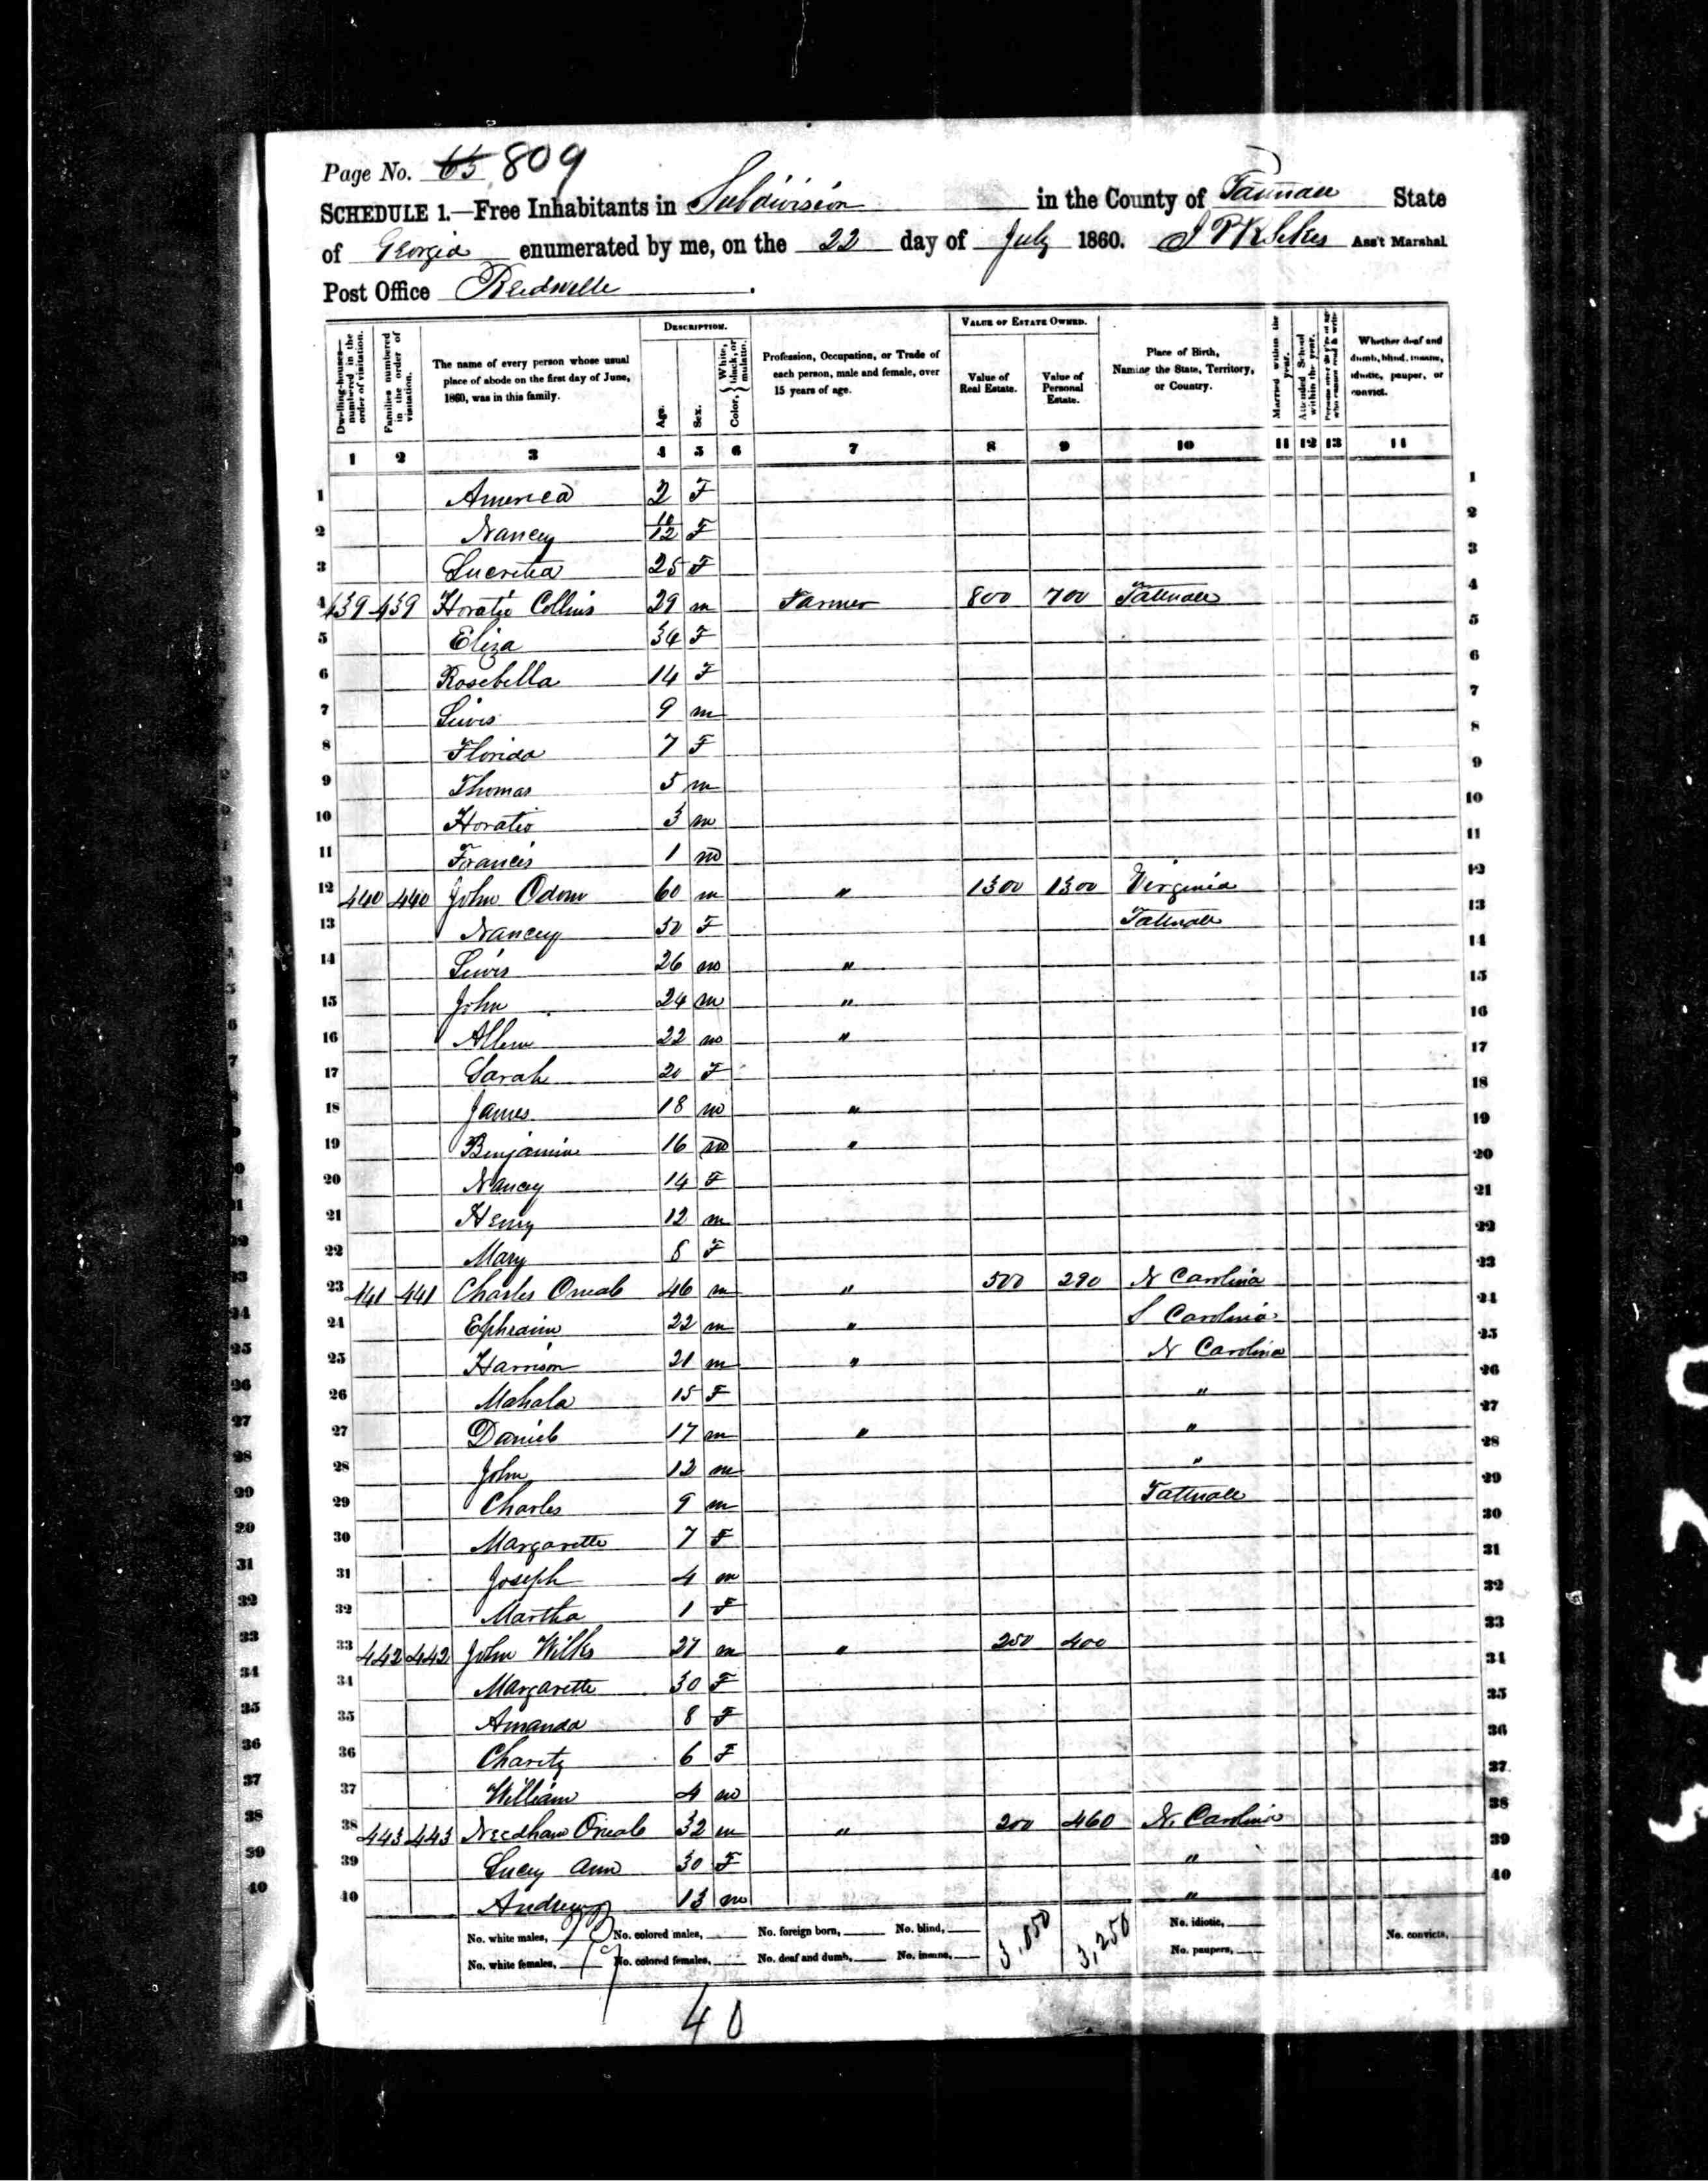 Page No. 65 809
SCHEDULE 1.—Free Inhabitants in Subdivision in the County of Tattnall State
of Georgia enumerated by me, on the 22 day of July 1860. Ass't Marshal
Post Office Reidsville.
Dwelling-houses—numbered in the order of visitation. Families numbered in the order of visitation. The name of every person whose usual place of abode on the first day of June, 1860, was in this family. DESCRIPTION. Age. Sex. Color, { White, black, or mulatto. Profession, Occupation, or Trade of each person, male and female, over 15 years of age. VALUE OF ESTATE OWNED. Value of Real Estate. Value of Personal Estate. Place of Birth, Naming the State, Territory, or Country. Married within the year. Attended School within the year. Persons over 20 y'rs of age who cannot read & write. Whether deaf and dumb, blind, insane, idiotic, pauper, or convict.
1 2 3 4 5 6 7 8 9 10 11 12 13 14
1 America 2 F 1
2 Nancy 10/12 F 2
3 Lucretia 25 F 3
4 439 439 Horatio Collins 29 m Farmer 800 700 Tattnall 4
5 Eliza 34 F 5
6 Rosebella 14 F 6
7 Lewis 9 m 7
8 Florida 7 F 8
9 Thomas 5 m 9
10 Horatio 3 m 10
11 Francis 1 m 11
12 440 440 John Odom 60 m " 1300 1300 Virginia 12
13 Nancy 50 F Tattnall 13
14 Lewis 26 m " 14
15 John 24 m " 15
16 Allen 22 m " 16
17 Sarah 20 F 17
18 James 18 m " 18
19 Benjamin 16 m " 19
20 Nancy 14 F 20
21 Henry 12 m 21
22 Mary 8 F 22
23 441 441 Charles Oneal 46 m " 500 290 N Carolina 23
24 Ephraim 22 m " S Carolina 24
25 Harrison 21 m " N Carolina 25
26 Mahala 15 F " 26
27 Daniel 17 m " " 27
28 John 12 m " 28
29 Charles 9 m Tattnall 29
30 Margarette 7 F 30
31 Joseph 4 m 31
32 Martha 1 F 32
33 442 442 John Wilks 27 m " 250 400 33
34 Margarette 30 F 34
35 Amanda 8 F 35
36 Charity 6 F 36
37 William 4 m 37
38 443 443 Needham Oneal 32 m " 200 460 N. Carolina 38
39 Lucy Ann 30 F " 39
40 Andrew 13 m " 40
No. white males, No. colored males, No. foreign born, No. blind, 3,050 3,250 No. idiotic, No. convicts,
No. white females, 17 No. colored females, No. deaf and dumb, No. insane, No. paupers,
40